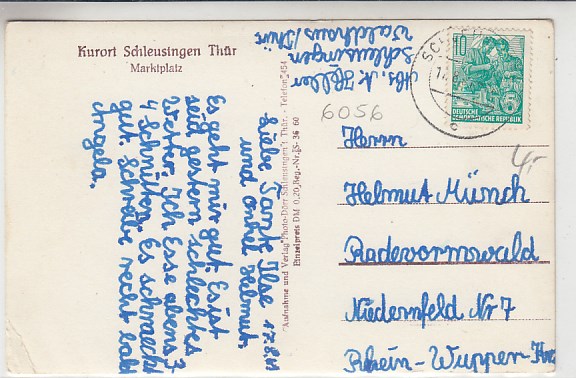 Kurort Schleusingen Thür
Marktplatz
Abs. A. Heller
Schleusingen
Waldhaus/Thür.
17.8.61
Liebe Tante Ilse
und Onkel Helmut.
Es geht mir gut. Es ist
seid gestern schlechtes
Wetter. Ich Esse abens 3
4 Schnitten. Es schmeckt
gut. Schreibe recht bald
Angela.
Aufnahme und Verlag Photo-Dörr Schleusingen i. Thür. - Telefon 454
Einzelpreis DM 0,20 Reg.-Nr. 36 60
6056
10
5
DEUTSCHE
DEMOKRATISCHE REPUBLIK
4,-
Herrn
Helmut Münch
Radevormwald
Niedernfeld Nr 7
Rhein-Wupper-Kre